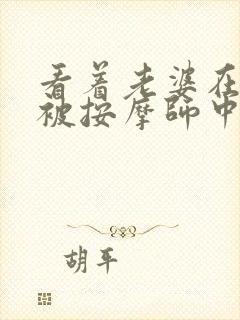 看着老婆在
被按摩师中
胡平